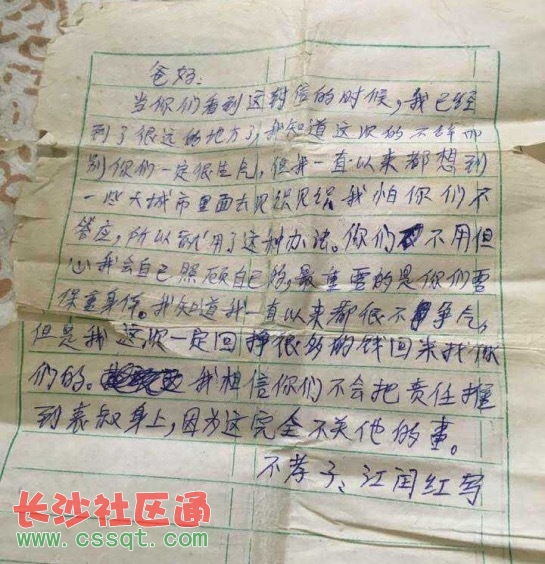 爸妈:
当你们看到这封信的时候,我已经
到了很远的地方了,我知道这次的不辞而
别你们一定很生气,但我一直以来都想到
一些大城市里面去见识见识,我怕你们不
答应,所以才用了这种办法。你们不用但
心我会自己照顾自己的,最重要的是你们要
保重身体。我知道我一直以来都很不争气,
但是我这次一定回挣很多的钱回来找你
们的。我相信你们不会把责任握
到表叔身上,因为这完全不关他的事。
不孝子:江闰红写
长沙社区通
www.cssqt.com